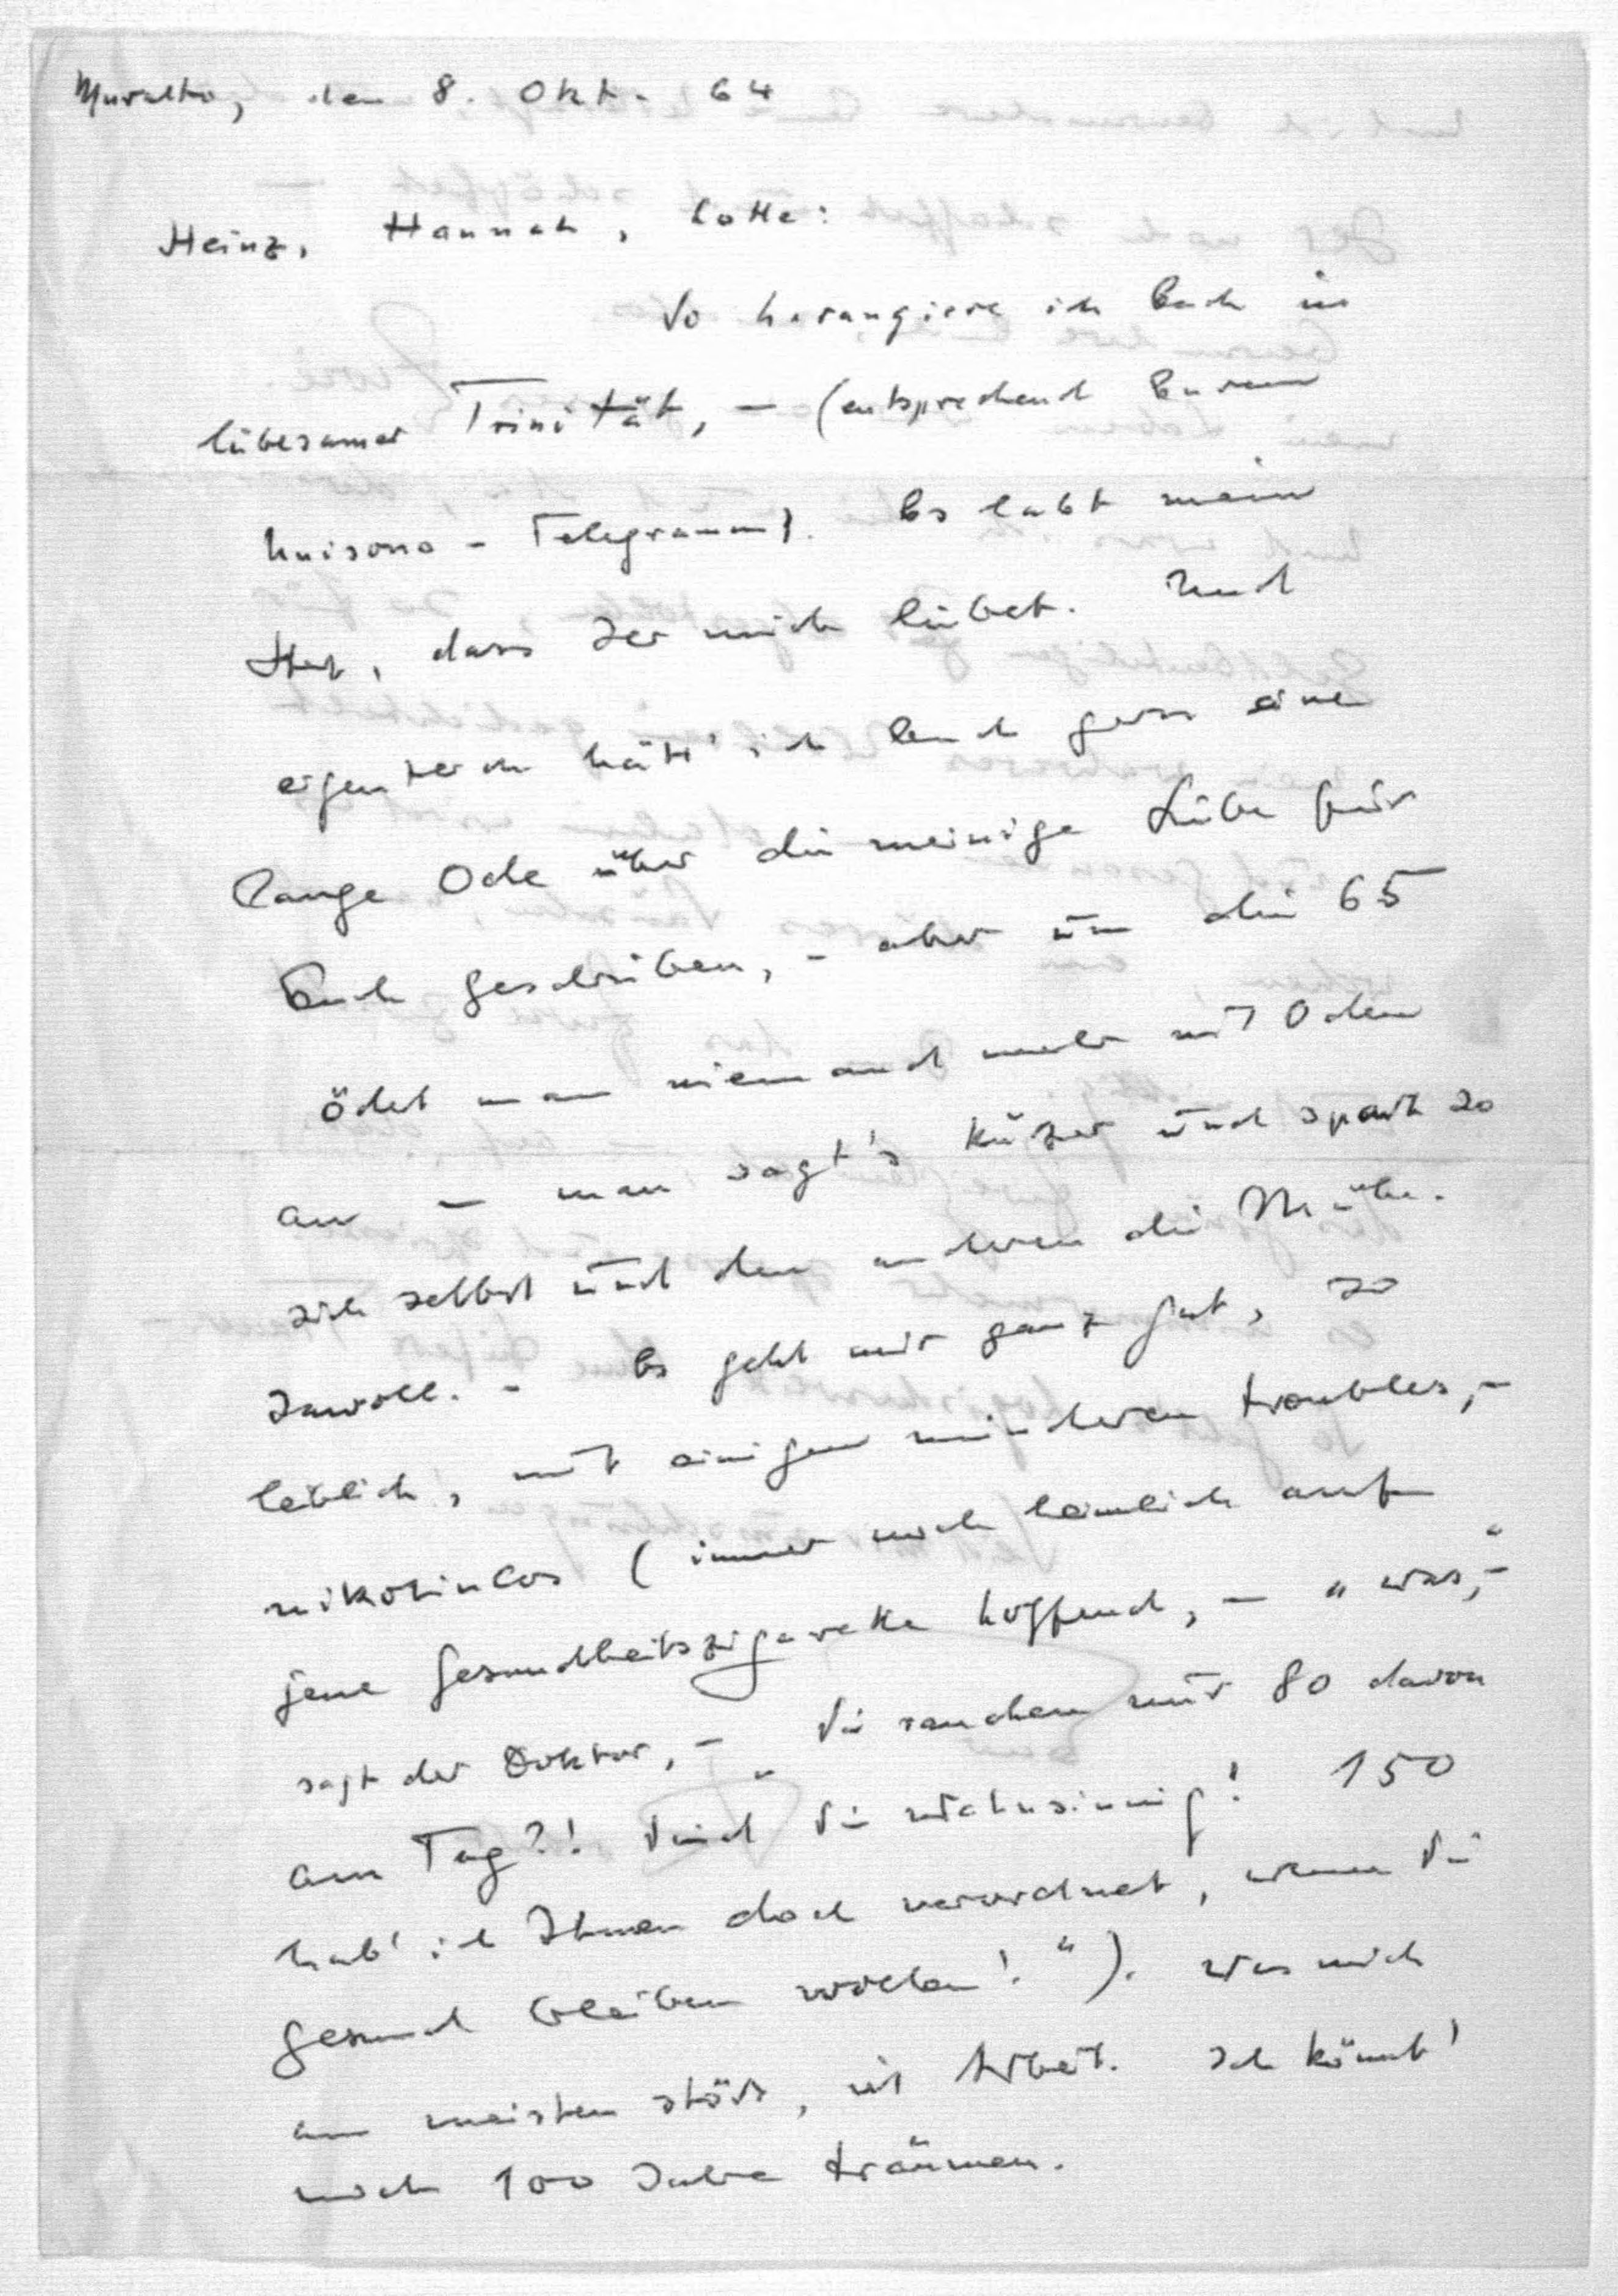 Muralto, den 8. Okt. 64
Heinz, Hannah, Lotte:
So harangiere ich Euch in
liebesamer Trinität, — (entsprechend Eurem
Unisono-Telegramm). Es labt mein
Herz, dass Ier mich liebet. Und
eigentlich hätt' ich Euch gern eine
lange Ode über die meinige Liebe für
Euch geschrieben, - aber um die 65
ödet man niemand mehr mit Oden
an — man sagt's kürzer und spart so
sich selbst und den anderen die Mühe.
Jawoll. - Es geht mir ganz gut, so
leiblich, mit einigen minderen troubles, -
nikotinlos (immer noch heimlich auf
jene Gesundheitszigarette hoffend, — „was,-"
sagt der Doktor, - „Sie rauchen nur 80 davon
am Tag?! Sind Sie wahnsinnig! 150
hab' ich Ihnen doch verordnet, wenn Sie
gesund bleiben wollen!"). Was mich
am meisten stört, ist Arbeit. Ich könnt'
noch 100 Jahre träumen.